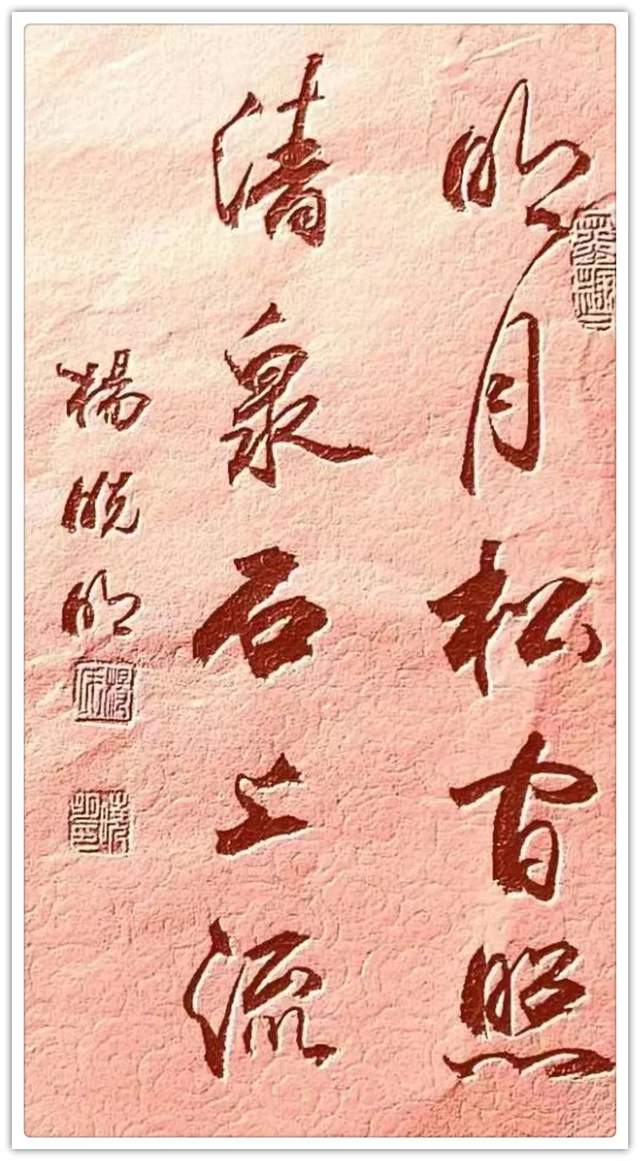 明月松间照
清泉石上流
杨晓明